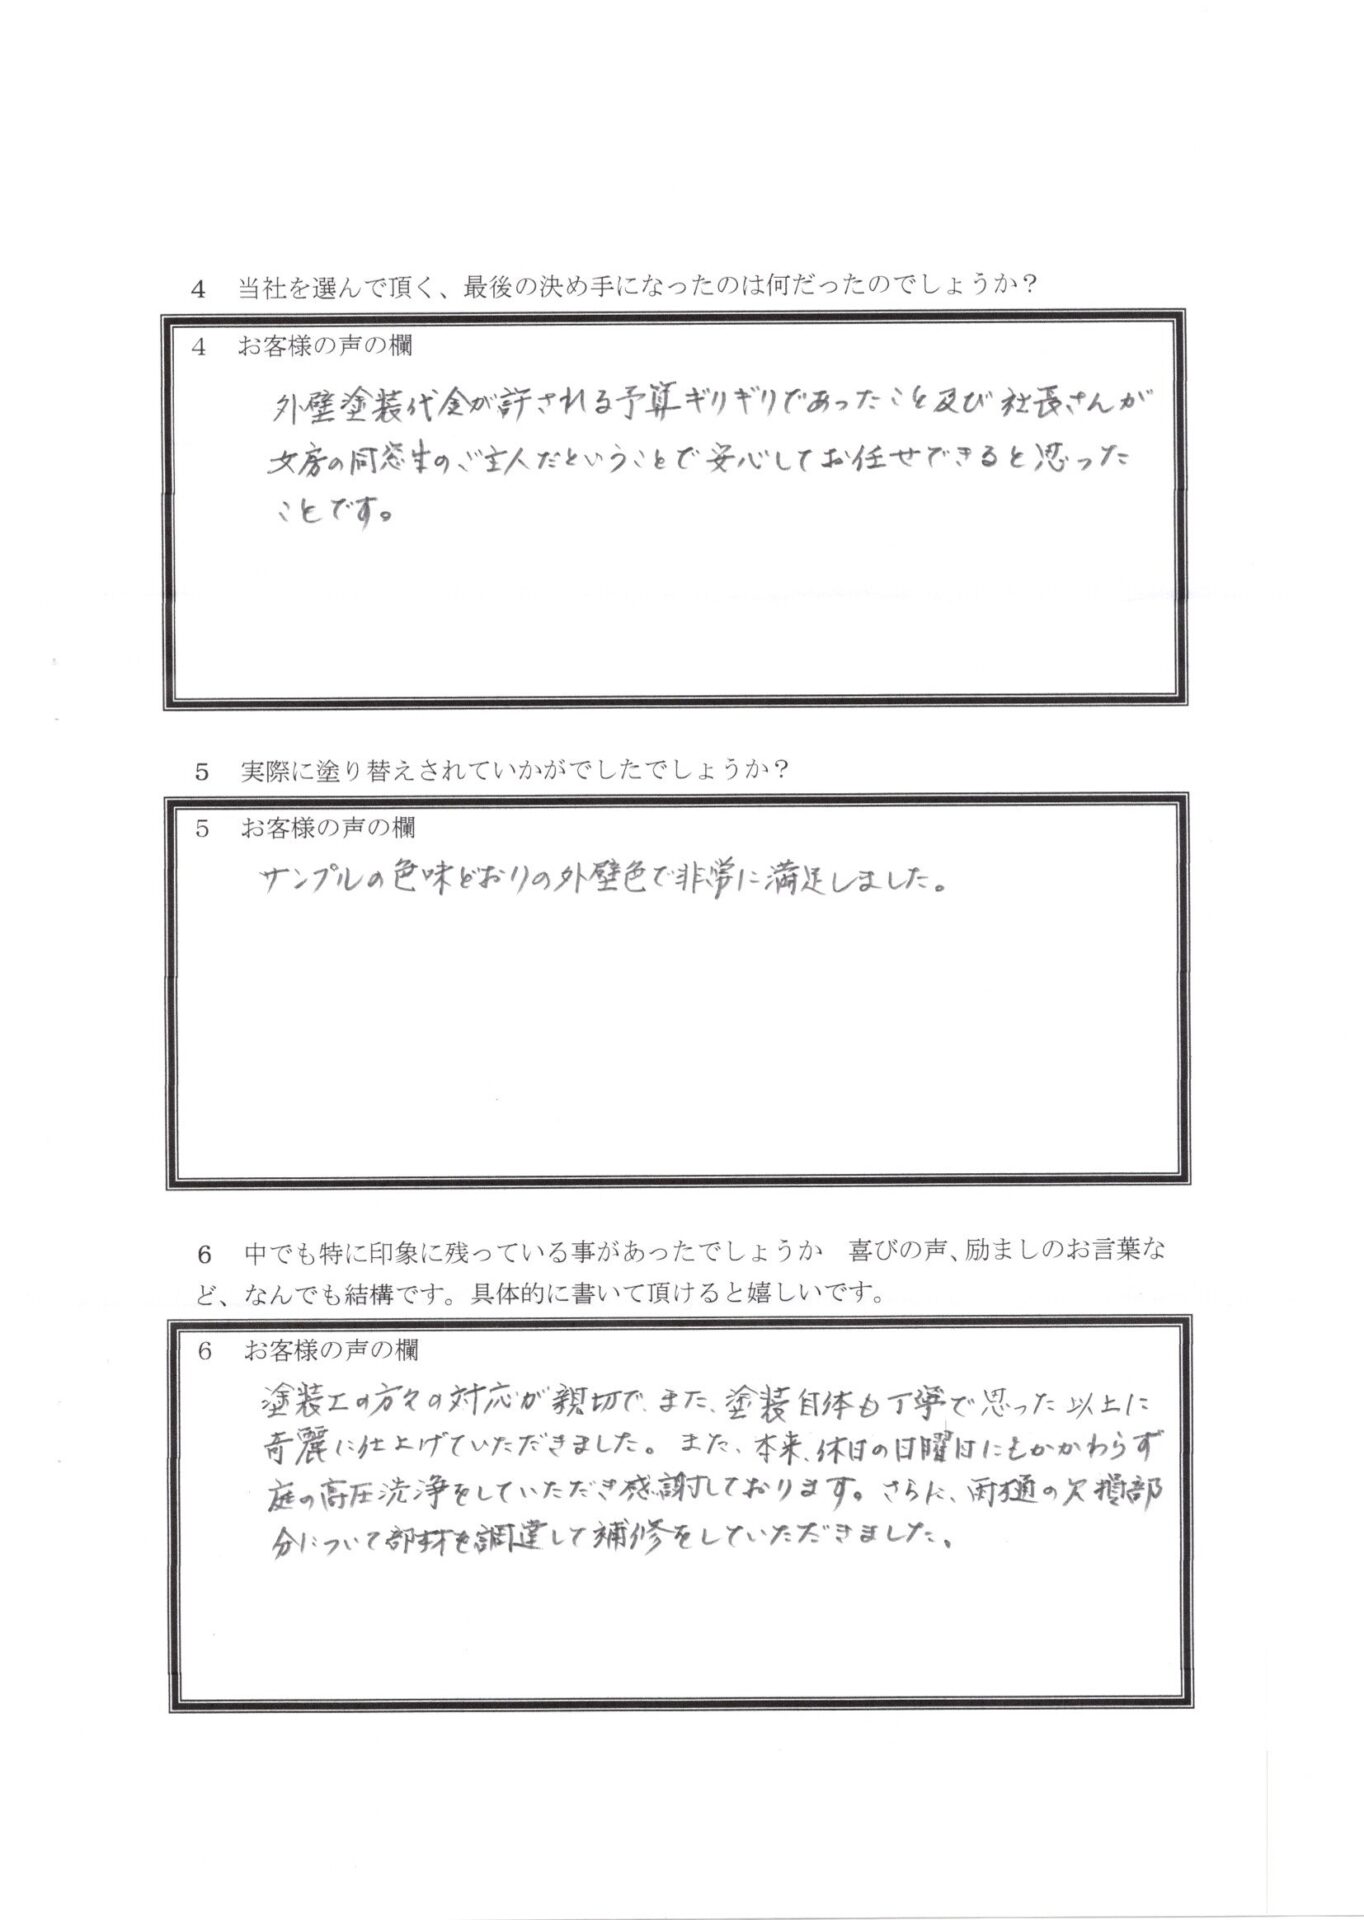 4 当社を選んで頂く、最後の決め手になったのは何だったのでしょうか？
4 お客様の声の欄
外壁塗装代金が許される予算ギリギリであったこと及び社長さんが
女房の同窓生のご主人だということで安心してお任せできると思った
ことです。
5 実際に塗り替えされていかがでしたでしょうか？
5 お客様の声の欄
サンプルの色味どおりの外壁色で非常に満足しました。
6 中でも特に印象に残っている事があったでしょうか 喜びの声、励ましのお言葉な
ど、なんでも結構です。具体的に書いて頂けると嬉しいです。
6 お客様の声の欄
塗装工の方々の対応が親切で、また、塗装自体も丁寧で思った以上に
奇麗に仕上げていただきました。また、本来、休日の日曜日にもかかわらず
庭の高圧洗浄をしていただき感謝しております。さらに、雨樋の欠損部
分について部材を調達して補修をしていただきました。